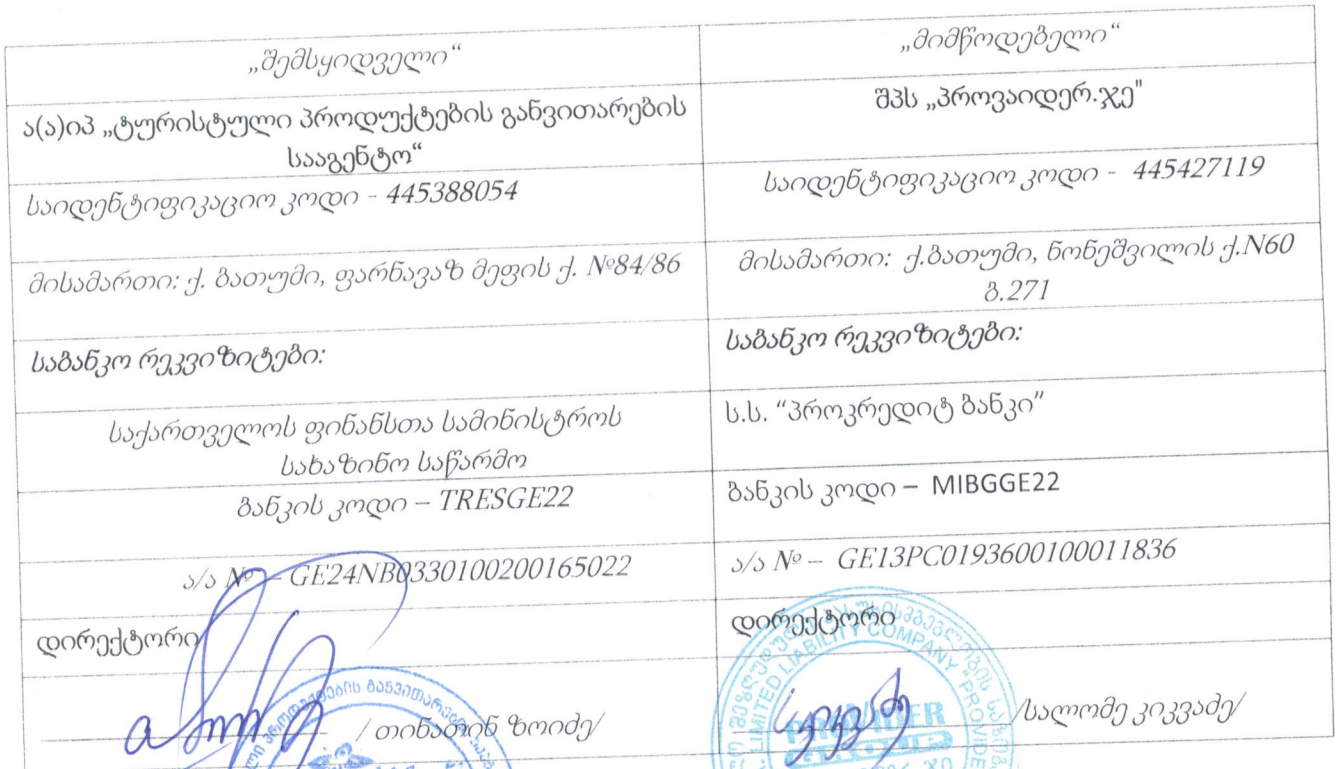 „შემსყიდველი“
„მიმწოდებელი“
ა(ა)იპ „ტურისტული პროდუქტების განვითარების
სააგენტო“
შპს „პროვაიდერ.ჯე"
საიდენტიფიკაციო კოდი - 445388054
საიდენტიფიკაციო კოდი - 445427119
მისამართი: ქ. ბათუმი, ფარნავაზ მეფის ქ. №84/86
მისამართი: ქ.ბათუმი, ნონეშვილის ქ.N60
ბ.271
საბანკო რეკვიზიტები:
საბანკო რეკვიზიტები:
საქართველოს ფინანსთა სამინისტროს
სახაზინო საწარმო
ს.ს. “პროკრედიტ ბანკი”
ბანკის კოდი – TRESGE22
ბანკის კოდი – MIBGGE22
ა/ა № – GE24NB0330100200165022
ა/ა № – GE13PC0193600100011836
დირექტორი
დირექტორი
/ თინათინ ზოიძე/
/სალომე კიკვაძე/
LIMITED LIABILITY COMPANY